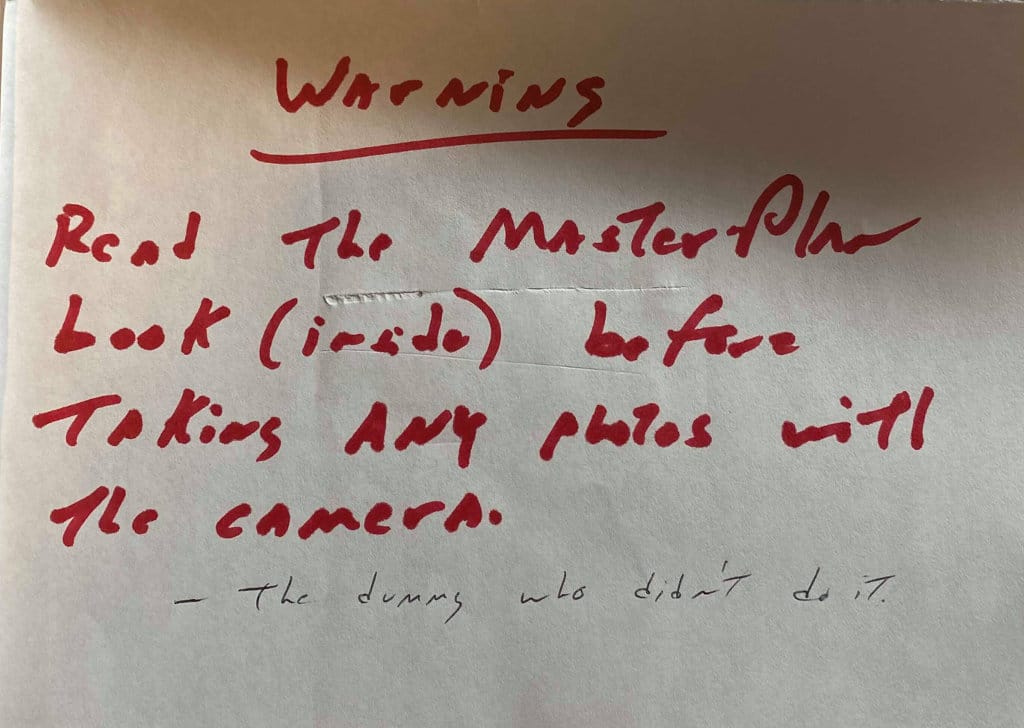 WARNING
Read The Master Plan
Look (inside) before
Taking ANY photos with
the camera.
- The dummy who didn't do it.